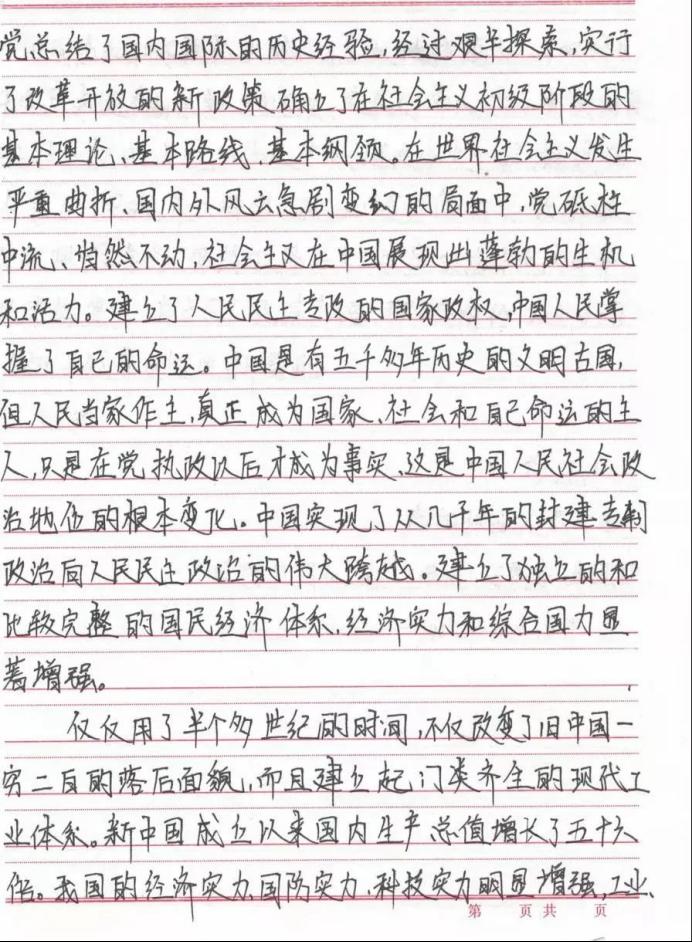 党总结了国内国际的历史经验,经过艰辛探索,实行
了改革开放的新政策确立了在社会主义初级阶段的
基本理论、基本路线、基本纲领。在世界社会主义发生
严重曲折、国内外风云急剧变幻的局面中,党砥柱
中流、岿然不动,社会主义在中国展现出蓬勃的生机
和活力。建立了人民民主专政的国家政权,中国人民掌
握了自己的命运。中国是有五千多年历史的文明古国,
但人民当家作主,真正成为国家、社会和自己命运的主
人,只是在党执政以后才成为事实、这是中国人民社会政
治地位的根本变化。中国实现了从几千年的封建专制
政治向人民民主政治的伟大跨越。建立了独立的和
比较完整的国民经济体系,经济实力和综合国力显
著增强。
仅仅用了半个多世纪间的时间,不仅改变了旧中国一
穷二白的落后面貌,而且建立起门类齐全的现代工
业体系。新中国成立以来国内生产总值增长了五十六
倍。我国的经济实力、国防实力、科技实力明显增强,工业、
第 页共 页